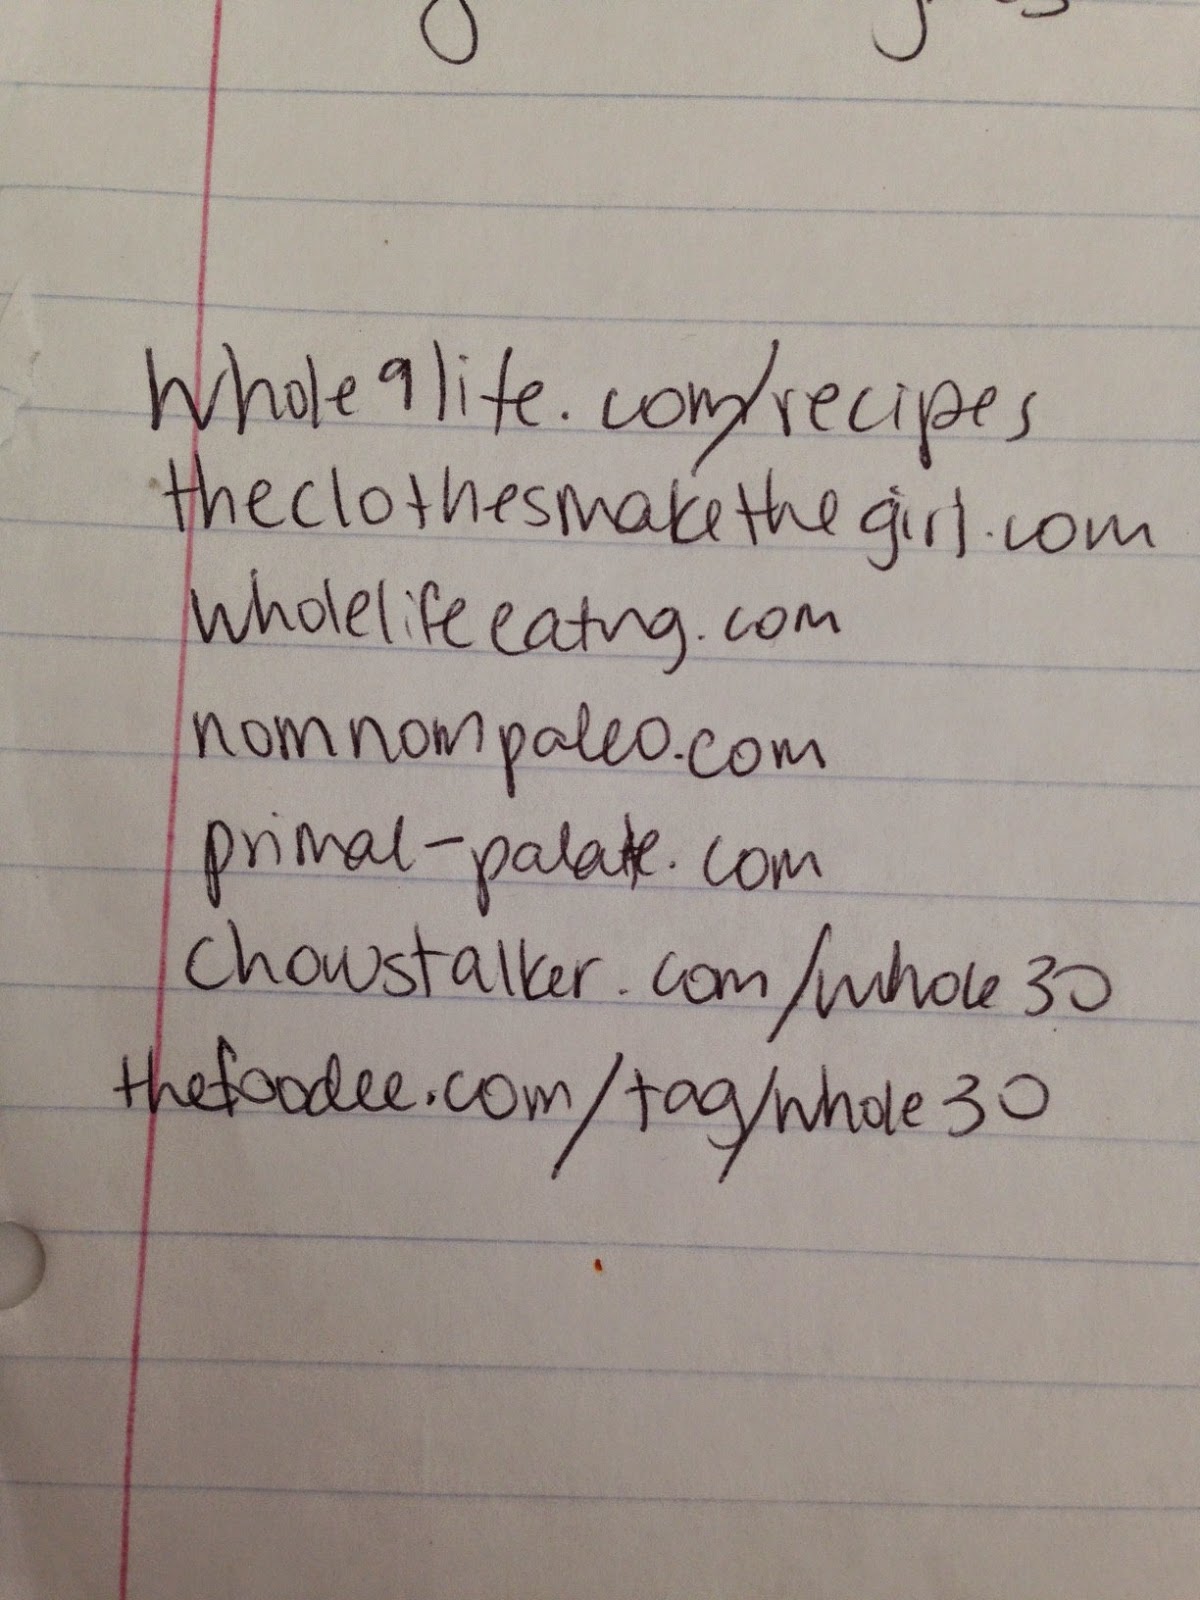 whole9life.com/recipes
theclothesmakethegirl.com
wholelifeeating.com
nomnompaleo.com
primal-palate.com
chowstalker.com/whole30
thefoodee.com/tag/whole30